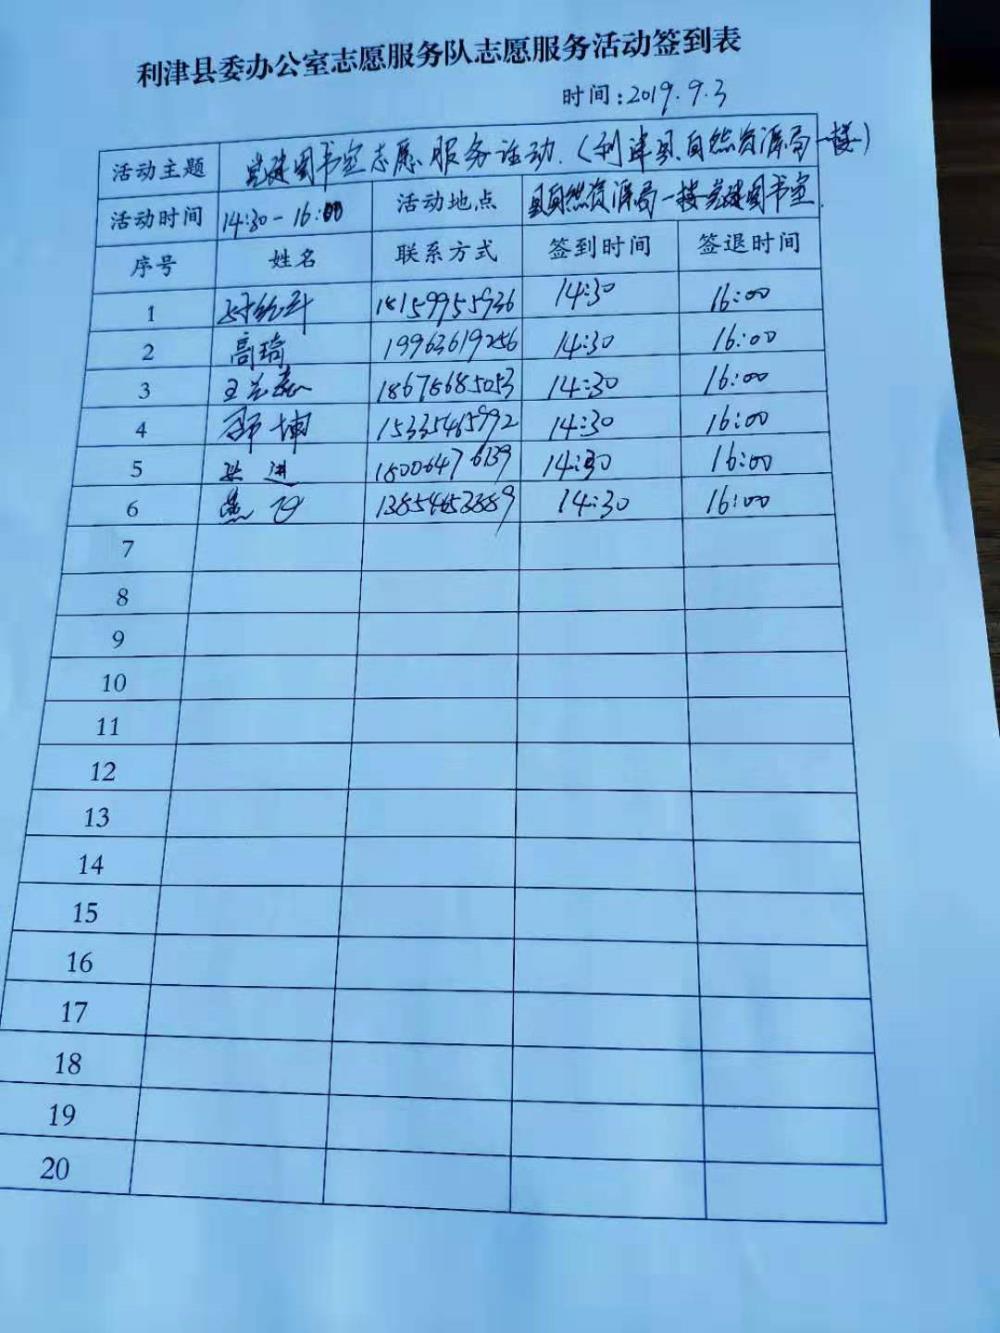 利津县委办公室志愿服务队志愿服务活动签到表
时间:2019.9.3
活动主题 党建图书室志愿服务活动.(利津县自然资源局一楼)
活动时间 14:30-16:00 活动地点 县自然资源局一楼党建图书室.
序号 姓名 联系方式 签到时间 签退时间
1 18159955936 14:30 16:00
2 高琦 19963619256 14:30 16:00
3 18678685053 14:30 16:00
4 坤 15335465992 14:30 16:00
5 进 18006476139 14:30 16:00
6 14:30 16:00
7
8
9
10
11
12
13
14
15
16
17
18
19
20